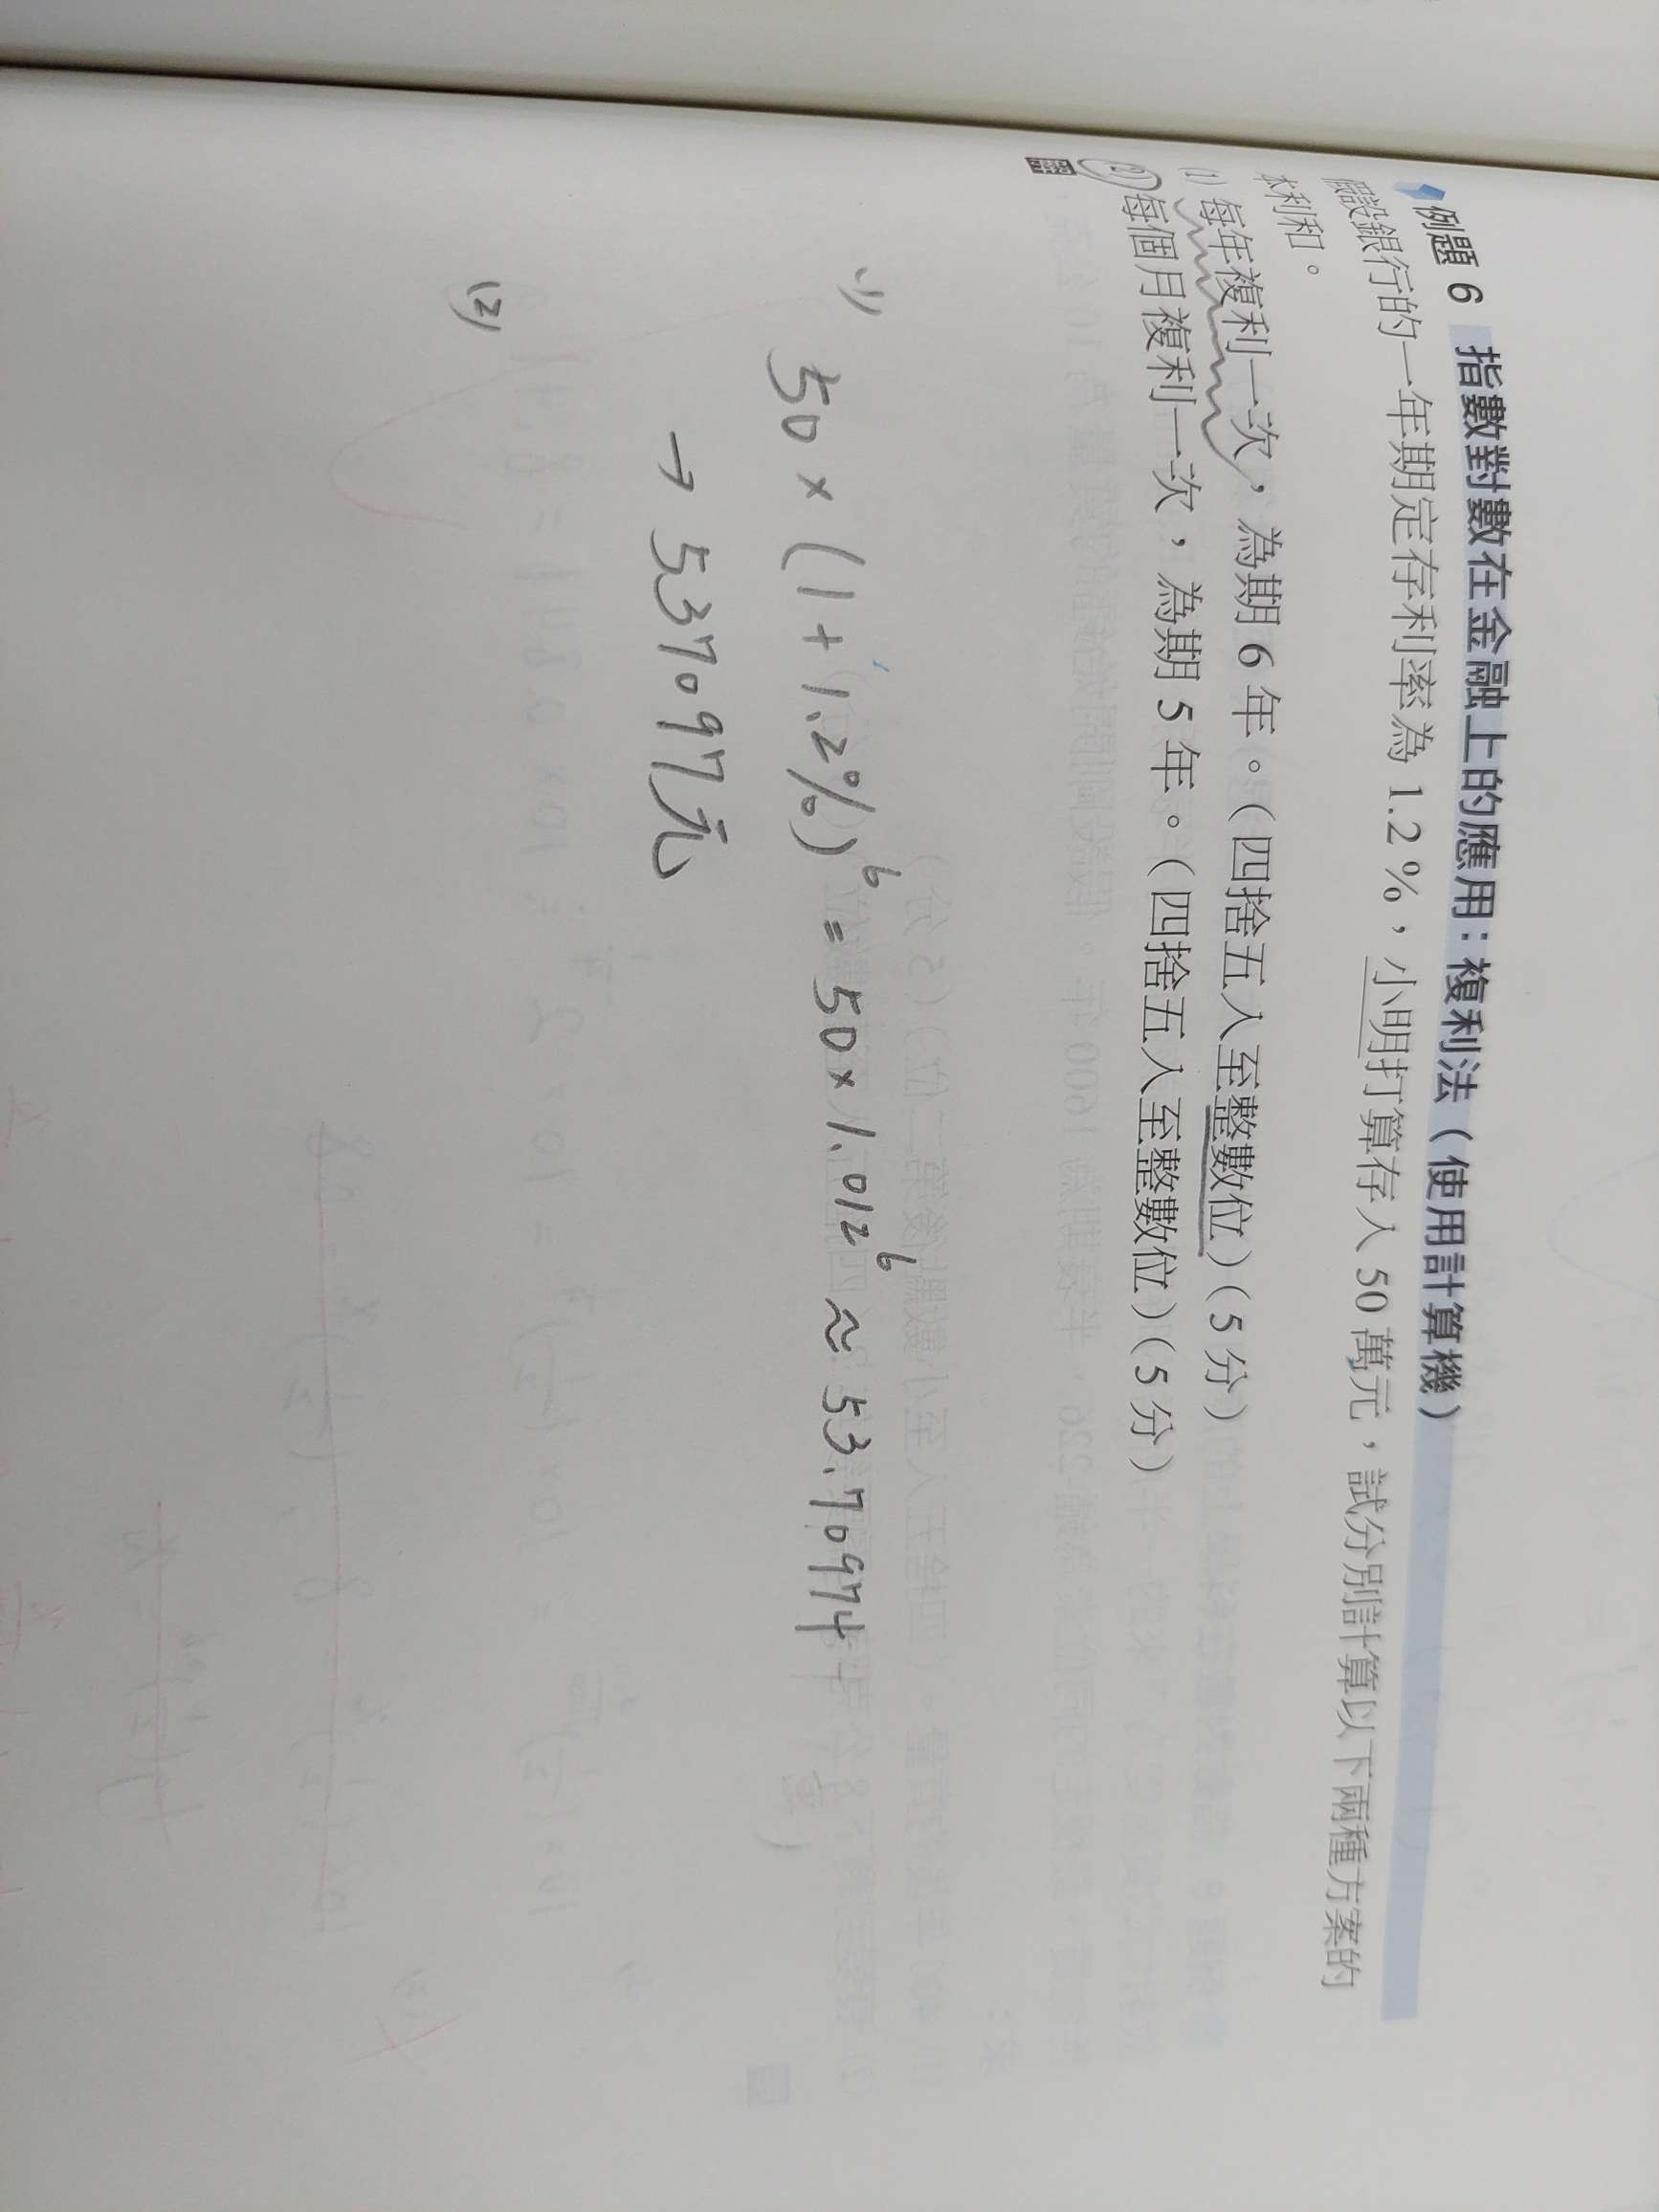 例題 6 指數對數在金融上的應用：複利法（使用計算機）
假設銀行的一年期定存利率為 1.2 %，小明打算存入 50 萬元，試分別計算以下兩種方案的
本利和。
(1) 每年複利一次，為期 6 年。（四捨五入至整數位）（5 分）
(2) 每個月複利一次，為期 5 年。（四捨五入至整數位）（5 分）
(1) 50 × (1 + 1.2%)^6 = 50 × 1.012^6 ≈ 53.70974
→ 537097元
(2)